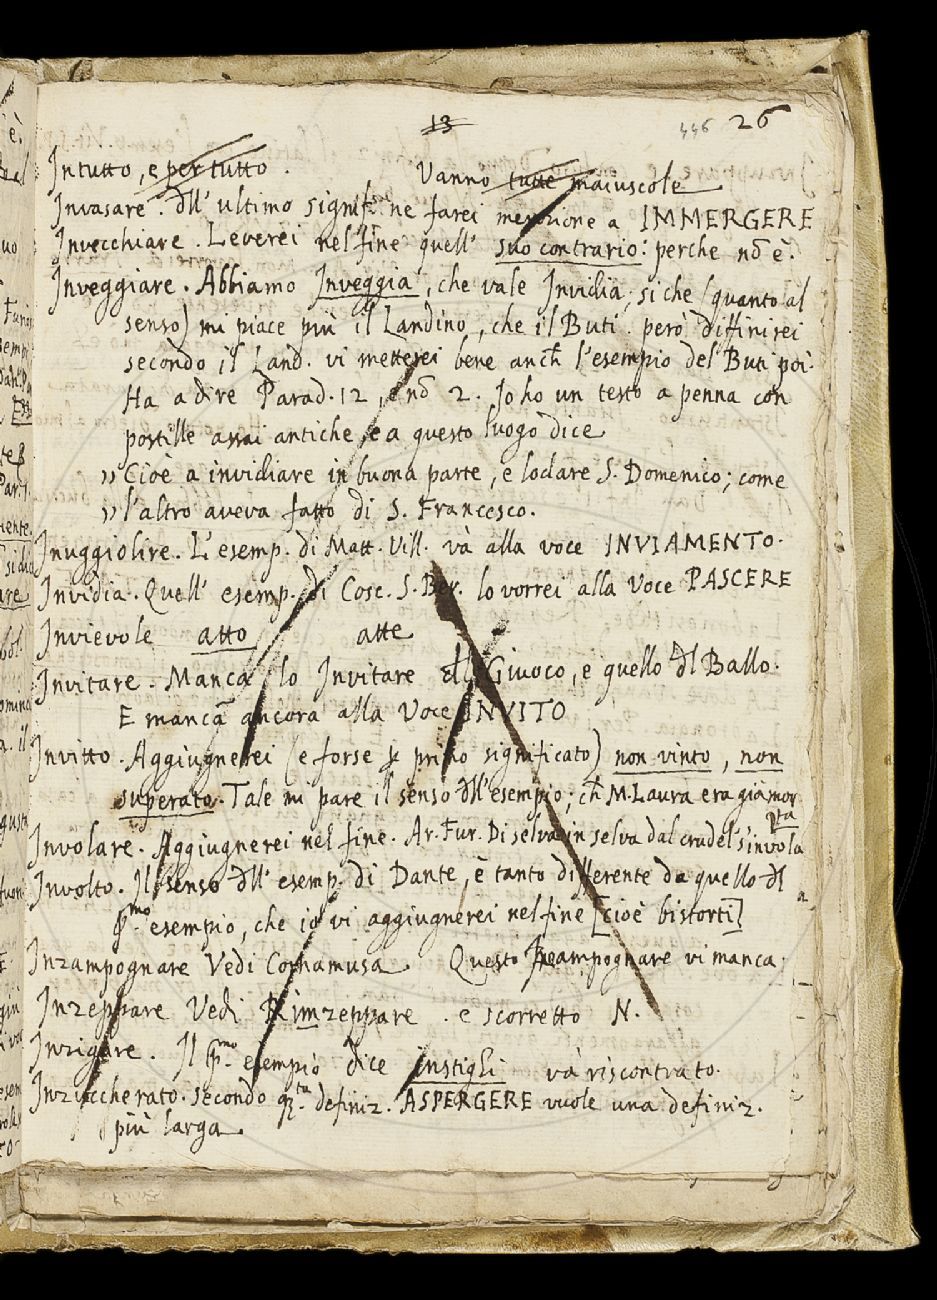 13
446 26
Intutto, e per tutto. Vanno tutte maiuscole
Invasare. Dll' ultimo signif. ne farei menzione a IMMERGERE
Invecchiare. Leverei nel fine quell' suo contrario: perche nō è.
Inveggiare. Abbiamo Inveggia, che vale Invidia, si che (quanto al
senso) mi piace più il Landino, che il Buti. però diffinirei
secondo il Land. vi metterei bene anch l'esempio del Buti poi.
Ha a dire Parad. 12, e nō 2. Io ho un testo a penna con
postille assai antiche, e a questo luogo dice
,, Cioè a invidiare in buona parte, e lodare S. Domenico; come
,, l'altro aveva fatto di S. Francesco.
Inuggiolire. L'esemp. di Matt. Vill. và alla voce INVIAMENTO.
Invidia. Quell' esemp. di Cosc. S. Ber. lo vorrei alla Voce PASCERE
Invievole atto atte
Invitare. Manca lo Invitare dl Giuoco, e quello dl Ballo.
E mancā ancora alla Voce INVITO
Invitto. Aggiugnerei (e forse p primo significato) non vinto, non
superato. Tale mi pare il senso dll'esempio; ch M. Laura era già mor
ta
Involare. Aggiugnerei nel fine. Ar. Fur. Di selva in selva dal crudel s'invola
Involto. Il senso dll' esemp. di Dante, è tanto differente da quello dl
p.mo esempio, che io vi aggiugnerei nel fine [cioè bistorti]
Inzampognare Vedi Cornamusa. Questo Inzampognare vi manca.
Inzeppare Vedi Rimzeppare. e scorretto N.
Inzigare. Il p.mo esempio dice instigli và riscontrato.
Inzuccherato. secondo q.ta definiz. ASPERGERE vuole una definiz.
più larga.